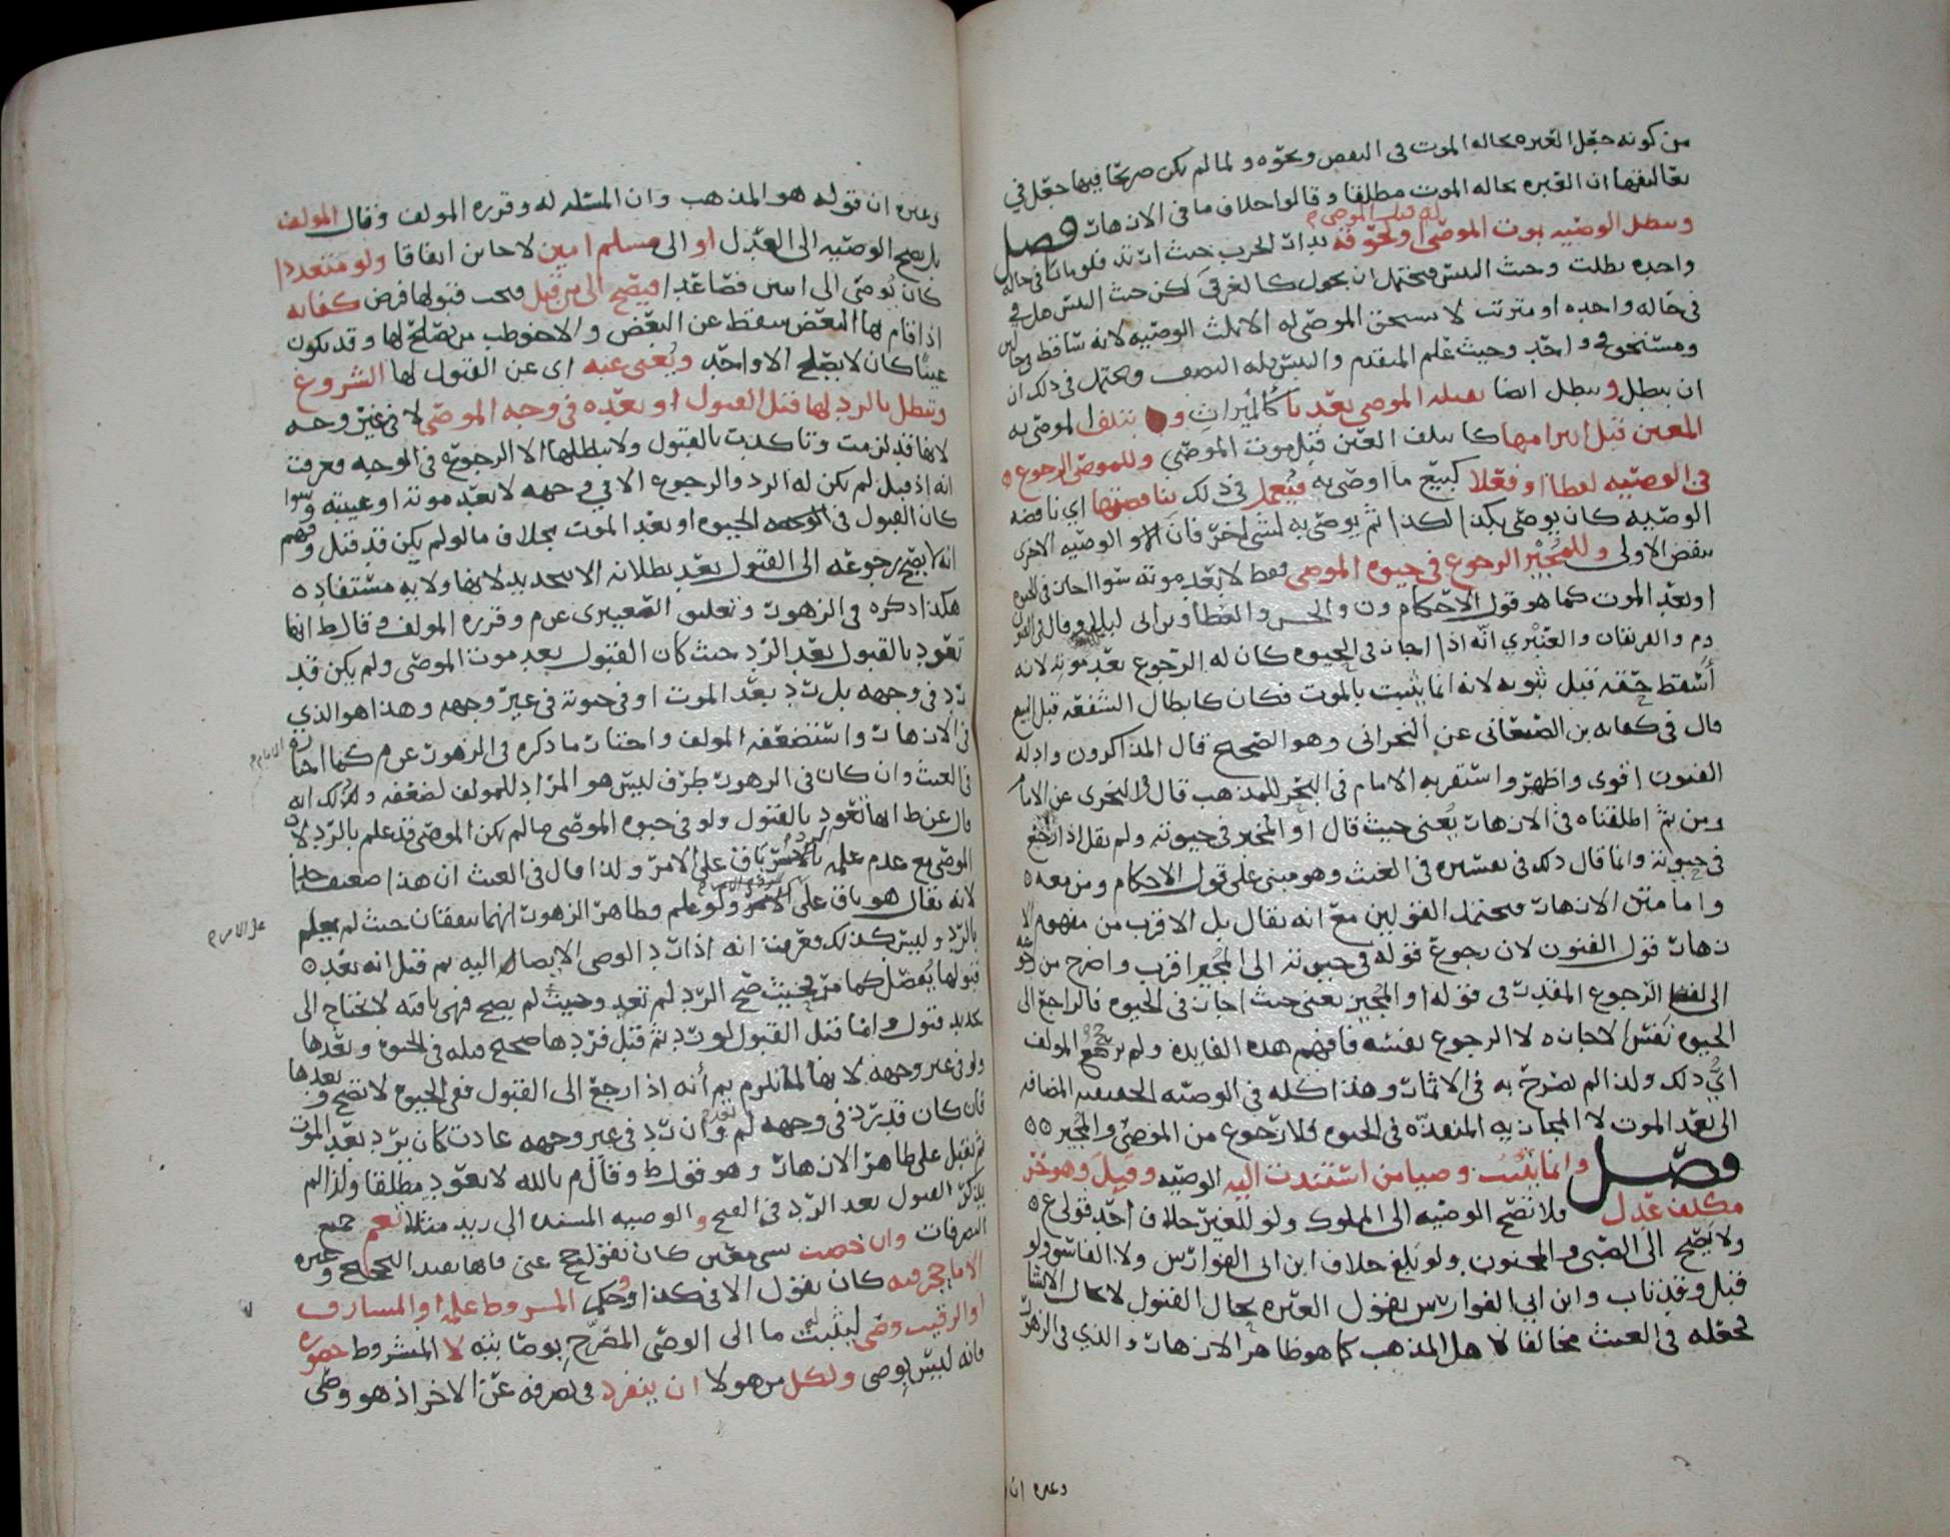 من كونه جعل العبره بحاله الموت في البعض ونحوه ولما لم يكن صريحا فيها جعل في
ان العبره بحاله الموت مطلقا وقالوا خلاف ما في الازهار فصل
وتبطل الوصيه بموت الموصى له قبل الموصي ونحوه بدار الحرب حيث فلو ماتا في حاله
واحده بطلت وحيث التبس فيحتمل ان يحول كالغرقى لكن حيث التبس هل في
في حاله واحده او مترتب لا يستحق الموصى له الا ثلث الوصيه لانه ساقط في حالين
ومستحق في واحد وحيث علم المتقدم والتبس فله النصف ويحتمل في ذلك ان
ان يبطل وتبطل ايضا بقتله الموصي كالميراث و بتلف الموصى به
المعين قبل كما تتلف العين قبل موت الموصي وللموصي الرجوع
في الوصيه لفظا او فعلا كبيع ما اوصى به فيعمل في ذلك بناقضتها اي ناقضه
الوصيه كان يوصي بكذا لكذا ثم يوصي به لشي اخر فان الوصيه الاخرى
تنقض الاولى وللمجيز الرجوع في حيوه الموصي فقط لا بعد موته سوا اجاز في الحيوه
او بعد الموت كما هو قول الاحكام ون والحسن والعطا وبن ابي ليلى وقال في الفنون
وم والفريقان والعنبري انه اذا اجاز في الحيوه كان له الرجوع بعد موته لانه
اسقط حقه قبل ثبوته لانه انما يثبت بالموت فكان كابطال الشفعه قبل البيع
قال في كفايه بن الصنعاني عن النجراني وهو الصحيح قال المذاكرون وادله
الفنون اقوى واظهر واستقر به الامام في البحر للمذهب قال النجري عن الامام
ومن ثم اطلقناه في الازهار يعنى حيث قال او المجيز في حيوته ولم يقل اذا رجع
في حيوته وانما قال ذلك في تفسيره في الغيث وهو مبنى على قول الاحكام ومن معه
واما متن الازهار فيحتمل القولين مع انه يقال بل الاقرب من مفهوم الا
زهار قول الفنون لان رجوع قوله في حيوته الى المجيز اقرب واصرح من
الى لفظ الرجوع المقدر في قوله او المجيز يعنى حيث اجاز في الحيوه فالراجع الى
الحيوه نفس الاجازه لا الرجوع نفسه فافهم هذه الفايده ولم يرجع المولف
الى ذلك ولذا لم يصرح به في الاثمار وهذا كله في الوصيه الحقيقيه المضافه
الى بعد الموت لا المجازيه المنفذه في الحيوه فلا رجوع من الموصي والمجيز
فصل وانما يتعين وصيا من استندت اليه الوصيه وقبل وهو حر
مكلف عدل فلا تصح الوصيه الى المملوك ولو للغير خلاف احد قولي ع
ولا يصح الى الصبي والمجنون ولو بلغ خلاف ابن ابي الفوارس ولا الفاسق ولو
قبل وقد تاب وابن ابي الفوارس يقول العبره بحال القبول لا بحال الايصا
فجعله في الغيث مخالفا لاهل المذهب كما هو ظاهر الازهار والذي في الزهور
وغيره ان
وغيره ان قوله هو المذهب وان المسئله له وقرره المولف وقال المولف
بل تصح الوصيه الى العدل او الى مسلم امين لا خاين اتفاقا ولو متعددا
كان يوصي الى اثنين فصاعدا فيصح الى من قبل فيجب قبولها فرض كفايه
اذا قام بها البعض سقط عن البعض والا خوطب من يصلح لها وقد يكون
عينا كان لا يصلح الا واحد ويغني عنه اي عن القبول لها الشروع
وتبطل بالرد لها قبل القبول او بعده في وجه الموصي لا في غير وجهه
لانها قد لزمت وتاكدت بالقبول ولا يبطلها الا الرجوع في الوجه فعرفت
انه اذا قبل لم يكن له الرد والرجوع الا في وجهه لا بعد موته او غيبته وسوا
كان القبول في الحيوه او بعد الموت بخلاف ما لو لم يكن قد قبل وفهم
انه لا يصح رجوعه الى القبول بعد بطلانه الا بتجديد لانها ولايه مستفاده
هكذا ذكره في الزهور وتعليق الصعيتري عن م وقرره المولف وقال ط انها
تعود بالقبول بعد الرد حيث كان القبول بعد موت الموصي ولم يكن قد
رد في وجهه بل رد بعد الموت او في حيوته في غير وجهه وهذا هو الذي
في الازهار واستضعفه المولف واختار ما ذكره في الزهور عن م كما اختاره الامام
في الغيث وان كان في الزهور طرف ليس هو المراد للمولف لضعفه وذلك انه
قال عن ط انها تعود بالقبول ولو في حيوه الموصي ما لم يكن الموصي قد علم بالرد لان
الموصي مع عدم علمه بالرد باق على الامر ولذا قال في الغيث ان هذا ضعيف جدا
لانه يقال هو باق على الامر ولو علم وظاهر الزهور انهما يتفقان حيث لم يعلم
بالرد وليس كذلك فعرفت انه اذا رد الوصي الايصا اليه ثم قبل انه بعد
قبولها يفصل كما مر فحيث صح الرد لم تعد وحيث لم يصح فهي باقيه لا تحتاج الى
تجديد قبول واما قبل القبول لو رد ثم قبل فردها صحيح قبله في الحيوه وبعدها
ولو في غير وجهه لانها لما تلزم ثم انه اذا رجع الى القبول ففي الحيوه لا تصح وبعدها
فان كان قد رد في وجهه لم تعد وان رد في غير وجهه عادت كان يرد بعد الموت
ثم يقبل على ظاهر الازهار وهو قول ط وقال م بالله لا يعود مطلقا ولذا لم
يذكر القبول بعد الرد في الفتح والوصيه المسنده الى زيد مثلا تعم جميع
التصرفات وان خصت بشي معين كان يقول حج عني فانها بعد الحج وغيره
الا ما حجر فيه كان يقول الا في كذا وحكي المشروط علمه او المشارف
او الرقيب وصي ليثبت له ما الى الوصي المصرح بوصايته لا المشروط حضوره
فانه ليس بوصي ولكل من هولا ان ينفرد في تصرفه عن الاخر اذ هو وصي
على الامر